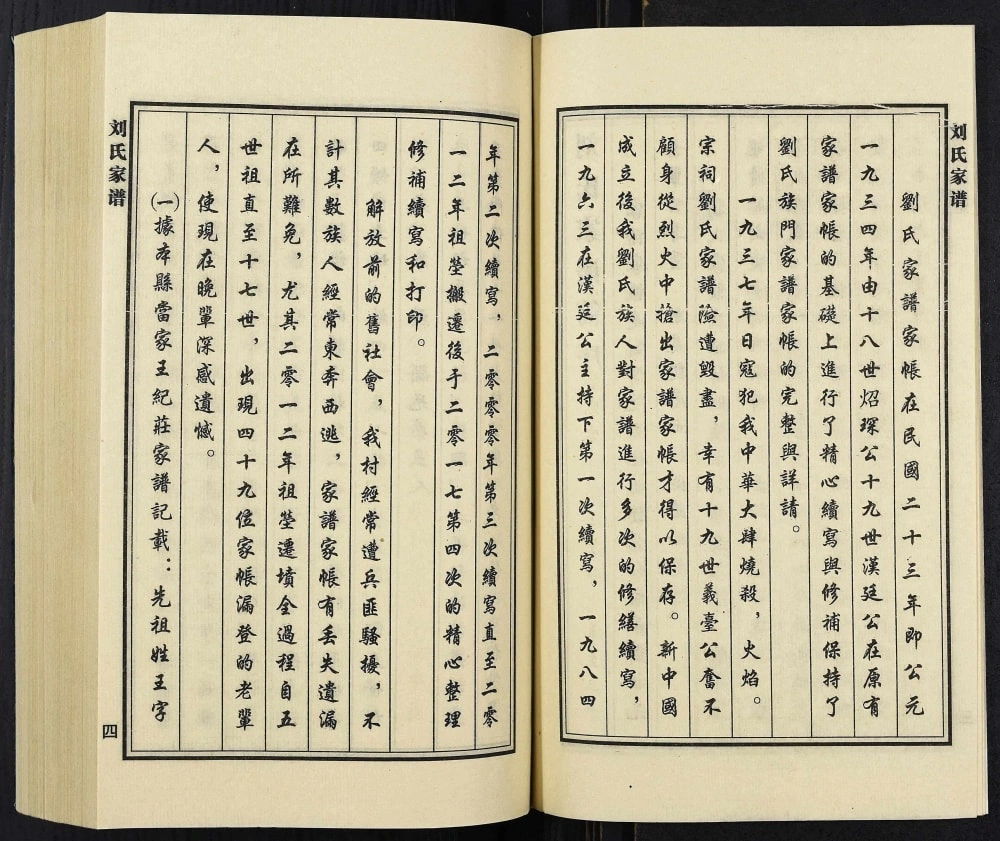 刘氏家谱
劉氏家譜家帳在民國二十三年即公元
一九三四年由十八世炤琛公十九世漢廷公在原有
家譜家帳的基礎上進行了精心續寫與修補保持了
劉氏族門家譜家帳的完整與詳請。
一九三七年日寇犯我中華大肆燒殺，火焰。
宗祠劉氏家譜險遭毀盡，幸有十九世義臺公奮不
顧身從烈火中搶出家譜家帳才得以保存。新中國
成立後我劉氏族人對家譜進行多次的修繕續寫，
一九六三在漢廷公主持下第一次續寫，一九八四
年第二次續寫，二零零零年第三次續寫直至二零
一二年祖塋搬遷後于二零一七第四次的精心整理
修補續寫和打印。
解放前的舊社會，我村經常遭兵匪騷擾，不
計其數族人經常東奔西逃，家譜家帳有丢失遺漏
在所難免，尤其二零一二年祖塋遷墳全過程自五
世祖直至十七世，出現四十九位家帳漏登的老輩
人，使現在晚輩深感遺憾。
(一)據本縣當家王紀莊家譜記載：先祖姓王字
刘氏家谱
四